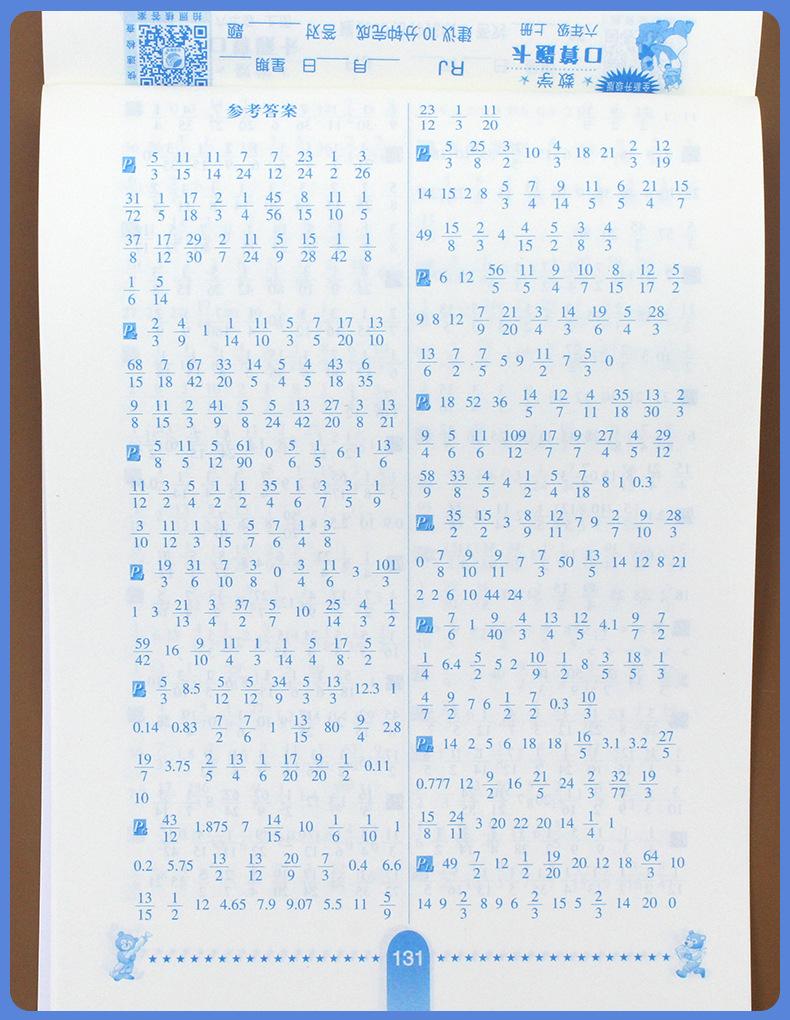 全新升级版
★ 数学 ★
口算题卡
六年级 上册
RJ 月 日 星期
建议 10 分钟完成 答对 题
拍照核答案
参考答案
P1 5/3 11/15 11/14 7/24 7/12 23/24 1/2 3/26
31/72 1/5 17/18 2/3 1/4 45/56 8/15 11/10 1/5
37/8 17/12 29/30 2/7 11/24 5/9 15/28 1/42 1/8
1/6 5/14
P2 2/3 4/9 1 1/14 11/10 5/3 7/5 17/20 13/10
68/15 7/18 67/42 33/20 14/5 5/4 4/5 43/18 6/35
9/8 11/15 2/3 41/9 5/8 5/24 13/42 27/20 3/8 13/21
P3 5/8 11/5 5/12 61/90 0 5/6 1/5 6 1 13/6
11/12 3/5 5/4 1/2 1/2 35/4 1/6 3/7 3/5 5/9
3/10 11/12 3/3 1/5 15/7 7/6 1/4 3/8
P4 19/3 31/6 7/10 8/8 0 3/4 11/6 3 101/3
1 3 21/13 3/4 37/2 5/7 10 25/14 4/3 1/2
59/42 16 9/10 11/4 1/3 1/14 5/4 17/8 5/2
P5 5/3 8.5 5/12 5/12 34/5 9/3 13/3 12.3 1
0.14 0.83 7/2 7/6 1 13/15 80 9/4 2.8
19/7 3.75 2/5 13/4 1/6 17/20 9/20 1/2 0.11
10
P6 43/12 1.875 7 14/15 10 1/6 1/10 1
0.2 5.75 13/2 13/12 20/9 7/3 0.4 6.6
13/15 1/2 12 4.65 7.9 9.07 5.5 11 5/9
23/12 1/3 11/20
P7 5/3 25/8 3/2 10 4/3 18 21 2/3 12/19
14 15 2 8 5/3 7/4 9/14 11/5 6/5 21/4 15/7
49 15/8 2/3 4 4/15 5/2 3/8 4/3
P8 6 12 56/5 11/5 9/4 10/7 8/15 12/17 5/2
9 8 12 7/9 21/20 3/4 14/3 19/6 5/4 28/3
13/6 7/2 7/5 5 9 11/2 7 5/3 0
P9 18 52 36 14/5 12/7 4/11 35/18 13/30 2/3
9/4 5/6 11/6 109/12 17/7 9/7 27/4 4/5 29/12
58/9 33/8 4/5 4 1/2 5/4 7/18 8 1 0.3
P10 35/2 15/2 3 8/9 12/11 7 9 2/7 9/10 28/3
0 7/8 9/10 9/11 7 7/3 50 13/5 14 12 8 21
2 2 6 10 44 24
P11 7/6 1 9/40 4/3 13/4 12/5 4.1 9/7 7/2
1/4 6.4 5/2 5 2 10/9 1/2 8 3/5 18/5 1/3
4/7 9/2 7 6 1/2 7/2 0.3 10/3
P12 14 2 5 6 18 18 16/5 3.1 3.2 27/5
0.777 12 9/2 16 21/5 24 2/3 32/77 19/3
15/8 24/11 3 20 22 20 14 1/4 1
P13 49 7/2 12 1/2 19/20 20 12 18 64/3 10
14 9 2/3 8 9 6 2/3 15 5 2/3 14 20 0
131